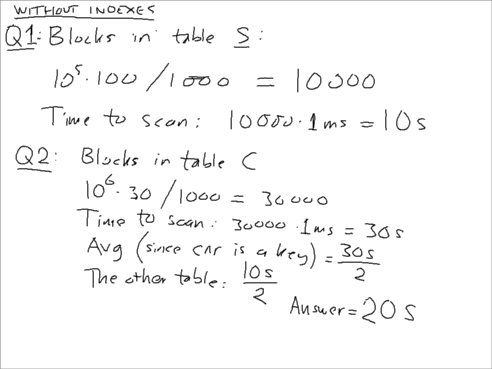 WITHOUT INDEXES
Q1: Blocks in table S:
10⁵·100/1000 = 10000
Time to scan: 10000·1ms = 10s
Q2: Blocks in table C
10⁶·30/1000 = 30000
Time to scan: 30000·1ms = 30s
Avg (since cnr is a key) = 30s/2
The other table: 10s/2
Answer = 20s